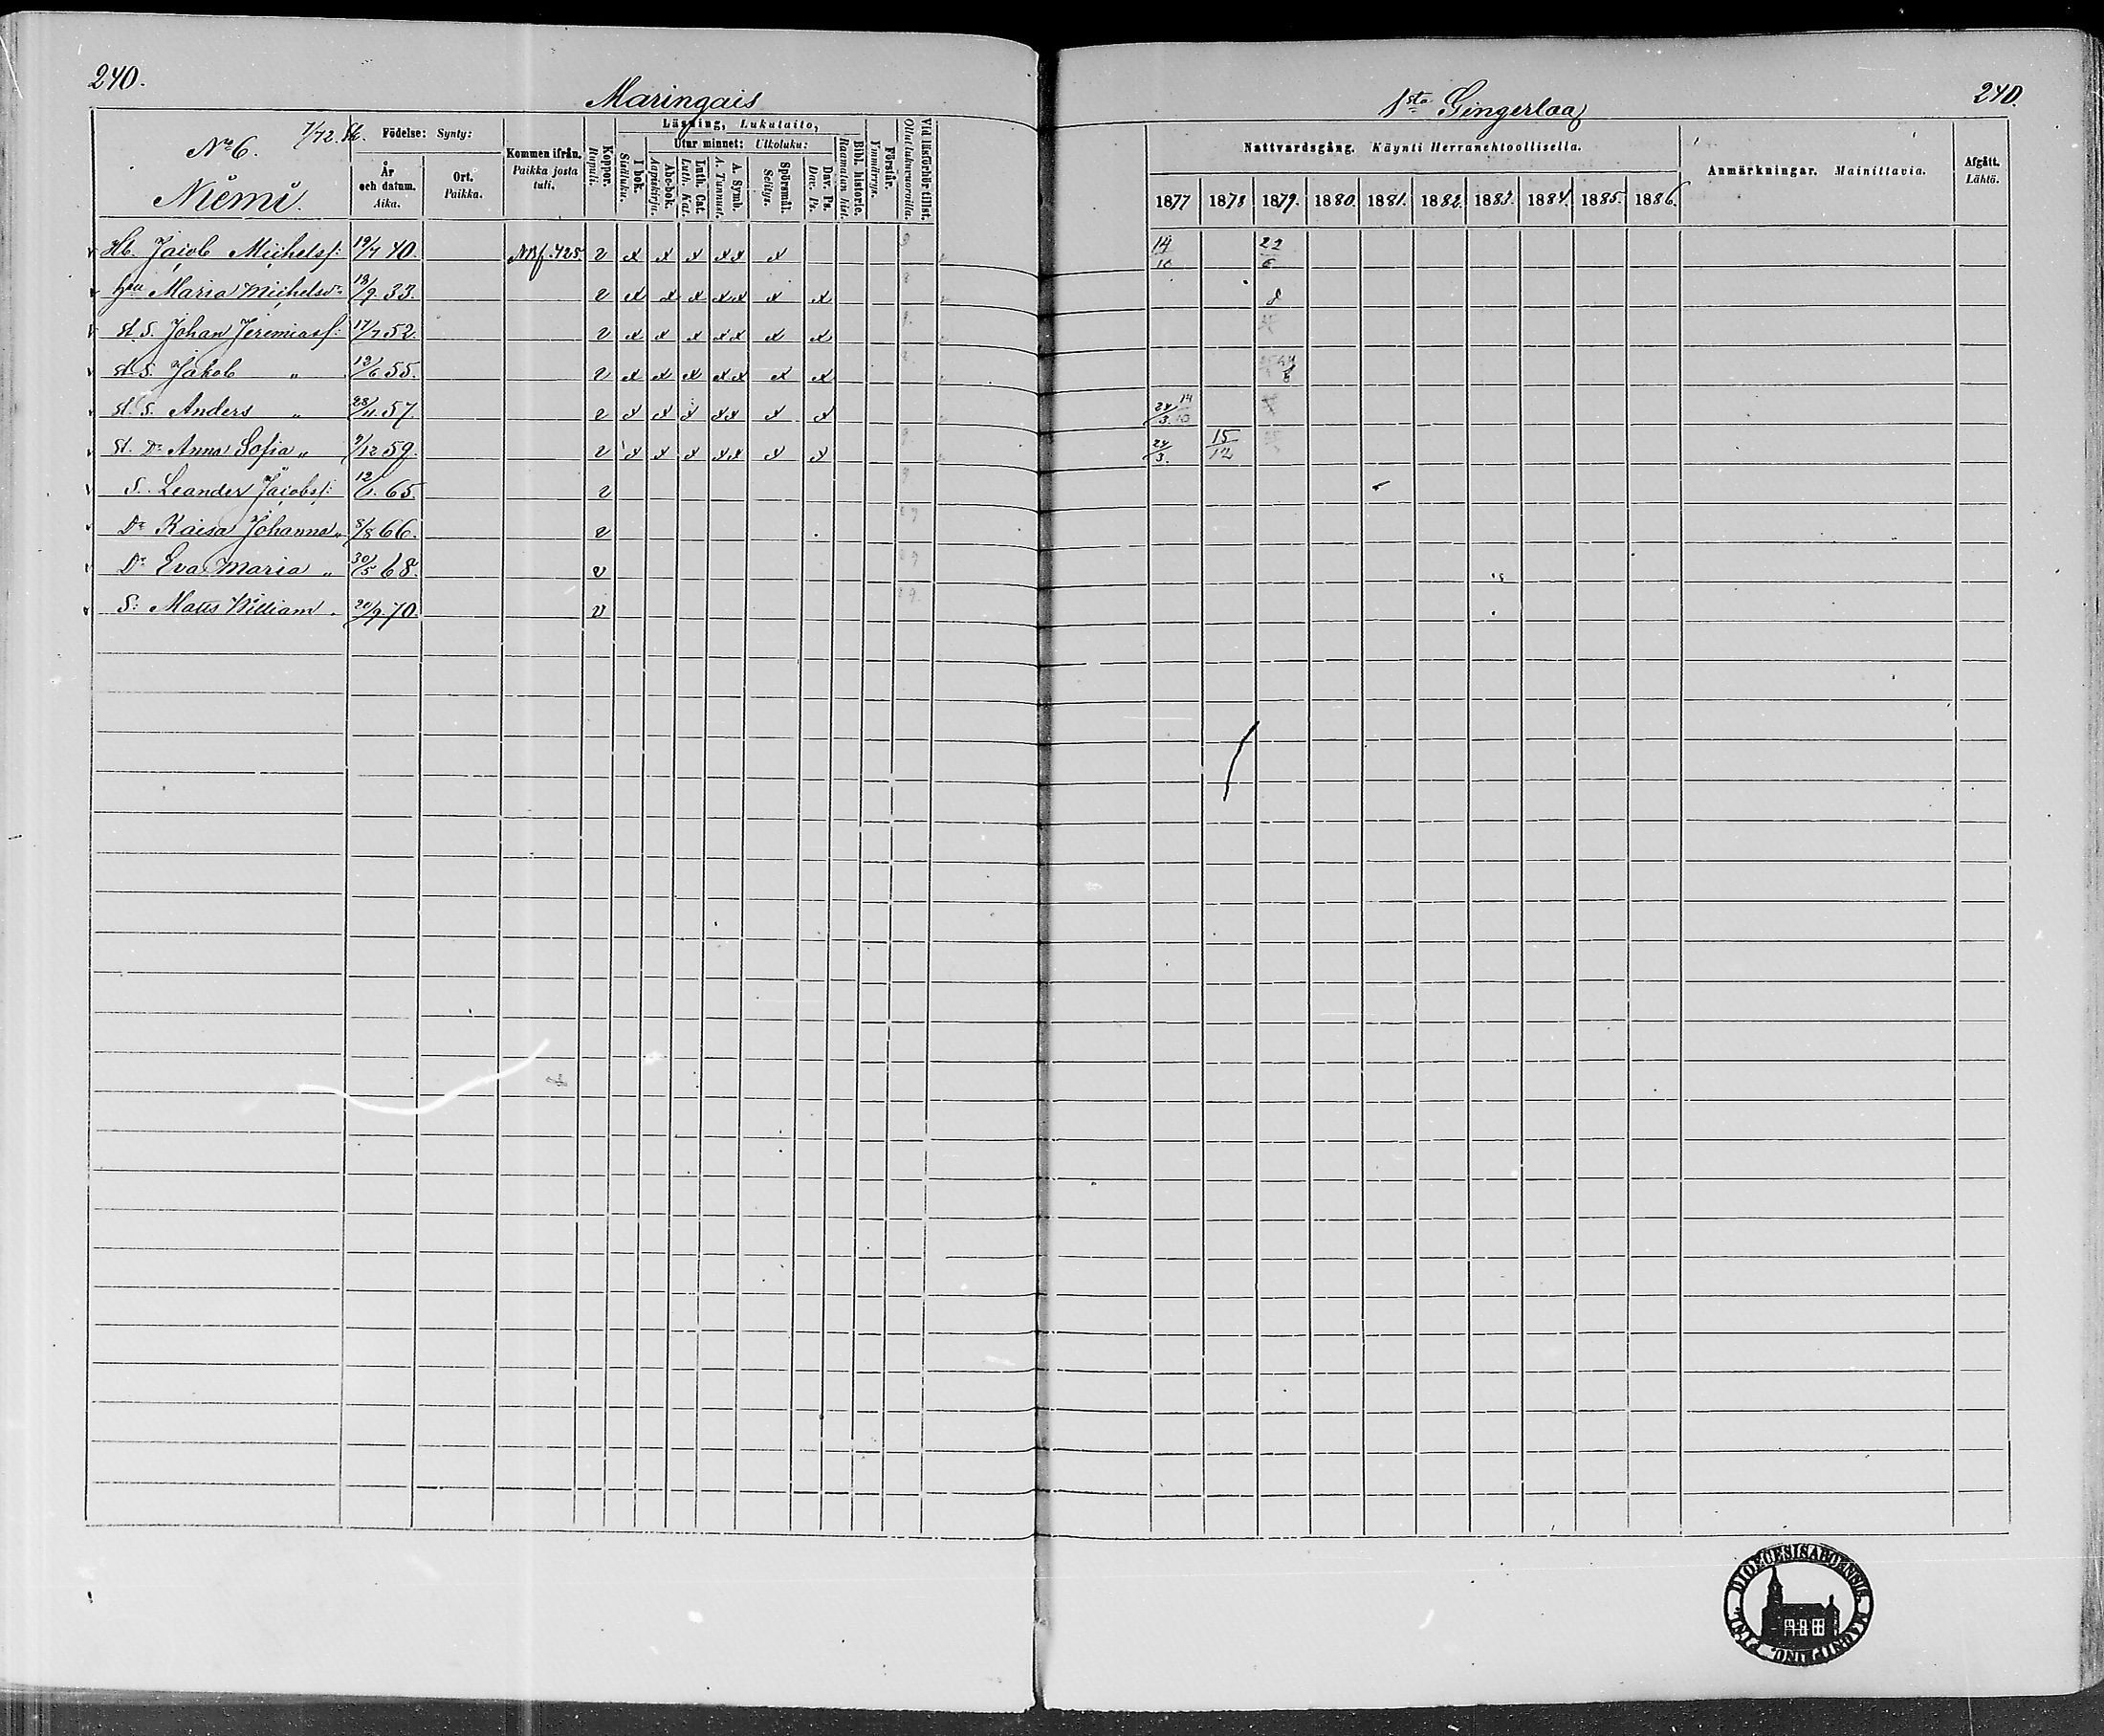 240.
Maringais
No 6. 7/72. M.
Niemi.
Födelse: Synty:
År och datum. Aika.
Ort. Paikka.
Kommen ifrån. Paikka josta tuli.
Koppor. Rupuli.
Läsning, Lukutaito,
I bok. Sisäluku.
Utur minnet: Ulkoluku:
Abc-bok. Aapiskirja.
Luth. Cat. Luth. Kat.
A. Symb. A. Tunnust.
Spörsmål. Selitys.
Dav. Ps. Dav. Ps.
Bibl. historie. Raamatun hist.
Förstår. Ymmärrys.
Vid läsförhör tillst. Ollut lukuvuorolla.
Hb. Jacob Michelss: 19/7 40. v x x x xx x
Hu Maria Michelsdr 18/9. 33. v x x x xx x x
st. S. Johan Jeremiass: 17/7 52. v x x x xx x x
st. S. Jakob " 12/6 55. v x x x xx x x
st. S. Anders " 28/11 57. v x x x xx x x
st. Dr Anna Sofia " 9/12 59. v x x x xx x x
S. Leander Jacobss: 12/1. 65. v
Dr Kaisa Johanna " 8/8 66. v
Dr Eva Maria " 30/5 68. v
S: Matts William " 20/9. 70. v
1sta Gingerlag
240.
Nattvardsgång. Käynti Herranehtoollisella.
1877 1878 1879. 1880. 1881. 1882. 1883. 1884. 1885. 1886.
Anmärkningar. Mainittavia.
Afgått. Lähtö.
14/10 22/6
8
24/3. 14/10
24/3. 15/12